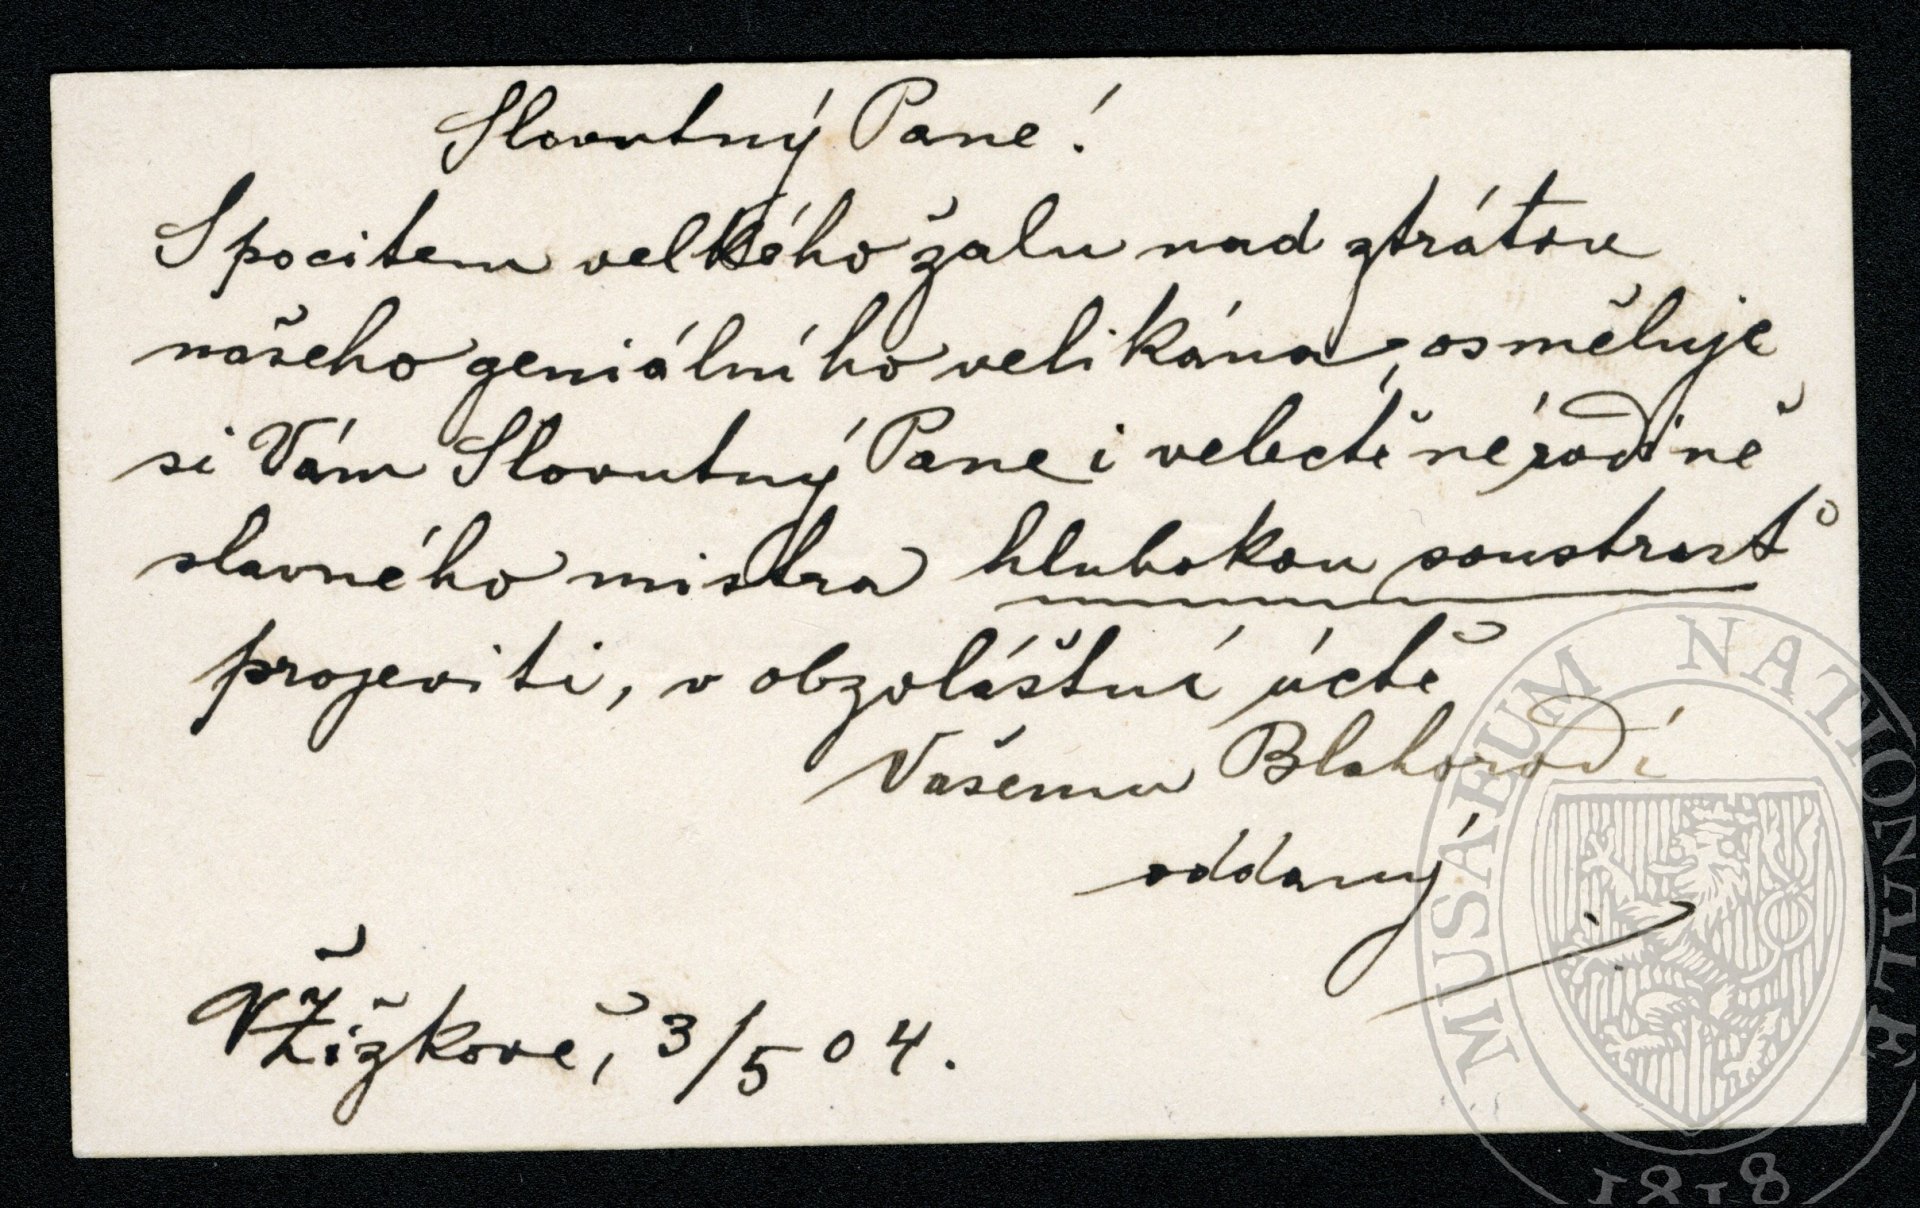 Slovutný Pane!
S pocitem velkého žalu nad ztrátou
našeho geniálního velikána, osměluje
si Vám Slovutný Pane i velectěné rodině
slavného mistra hlubokou soustrast
projeviti, v obzvláštní úctě
Vašemu Blahorodí
oddaný
V Žižkově, 3/5 04.
MUSAEUM NATIONALE
1818